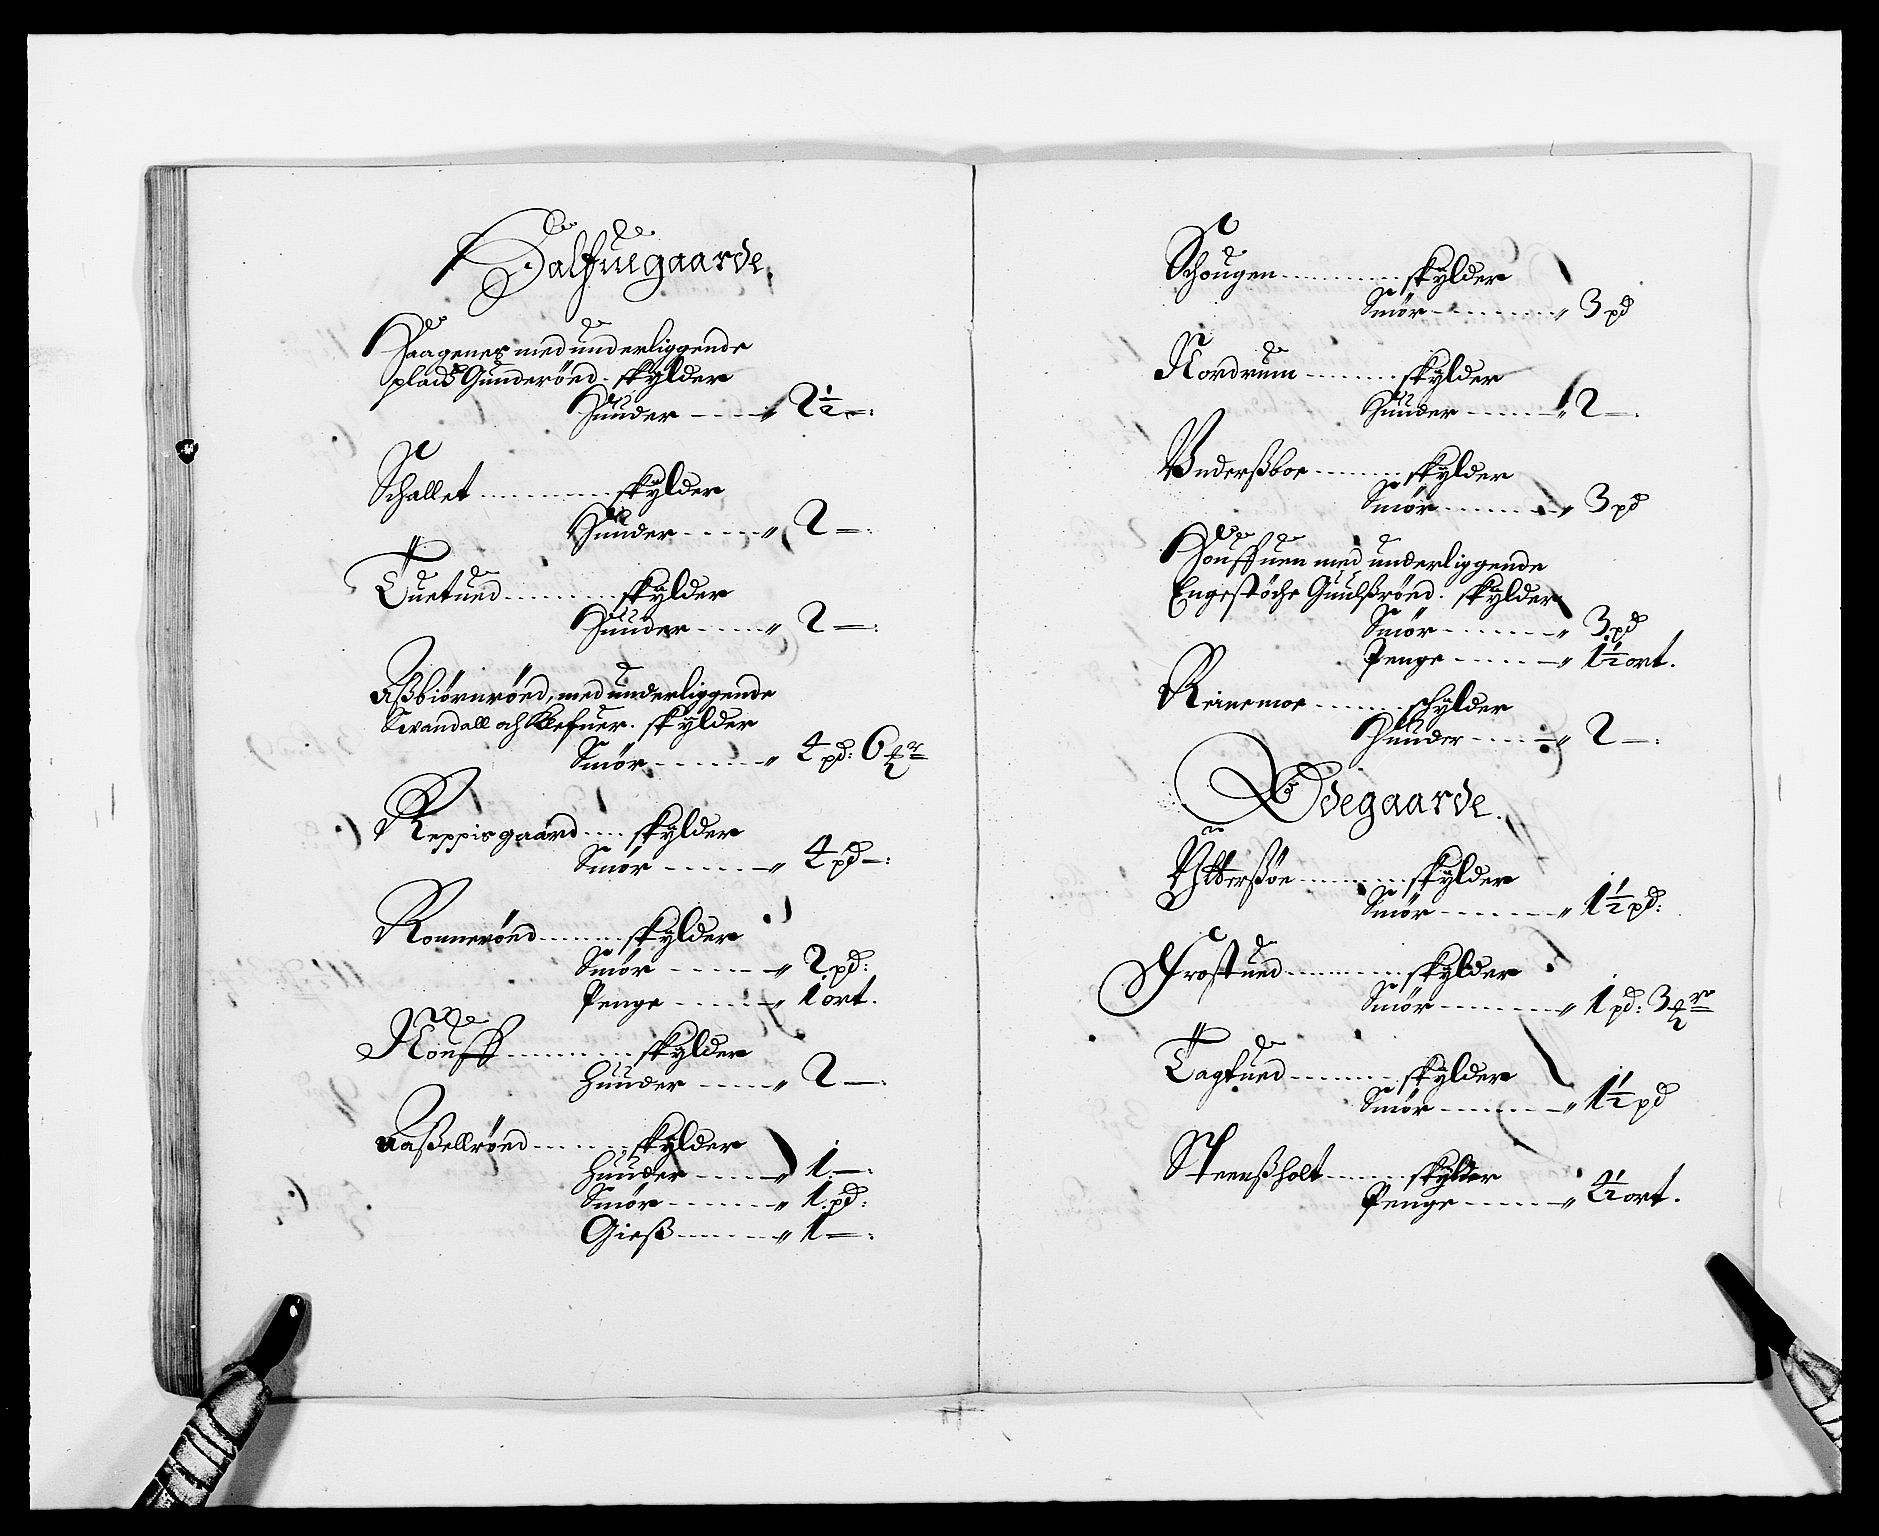 Halfuegaarde,
Haagenes med underliggende
plads Gunderöed. skylder
Huuder ----- " 2½ —:
Schallet ............ skylder
Huuder ----- " 2 —:
Tuetued .......... skylder
Huuder ----- " 2 —:
Aßbiörnröed, med underliggende
Sevandall och Klefuer. skylder
Smör ------ " 4 pd: 6 mr
Reppisgaard .... skylder
Smör ------ " 4 pd —:
Ronneröed ........ skylder
Smör ------ " 2 pd:
Penge ------ " 1 ort.
Röeuff ............ skylder
Huuder ----- " 2 —:
Aaßellröed ......... skylder
Huuder ----- " 1 —:
Smör ------ " 1 pd:
Gieß ------ " 1 —:
Schougen ............ skylder
Smör ------ " 3 pd
Nordrum ......... skylder
Huuder ------ " 2 —:
Underßboe ........ skylder
Smör ------ " 3 pd
Houffuen med underliggende
Engestöche Gunlßröed. skylder
Smör ------ " 3 pd
Penge ------ " 1½ ort.
Reinemoe ........ schylder
Huuder ----- " 2 —:
Ödegaarde.
Ÿtterßöe .......... skylder
Smör ------ " 1½ pd:
Frostued ........... skylder
Smör ------ " 1 pd: 3 mr
Tagtued ......... skylder
Smör ------ " 1½ pd
Steenßholt ....... skylder
Penge ------ " ½ ort.